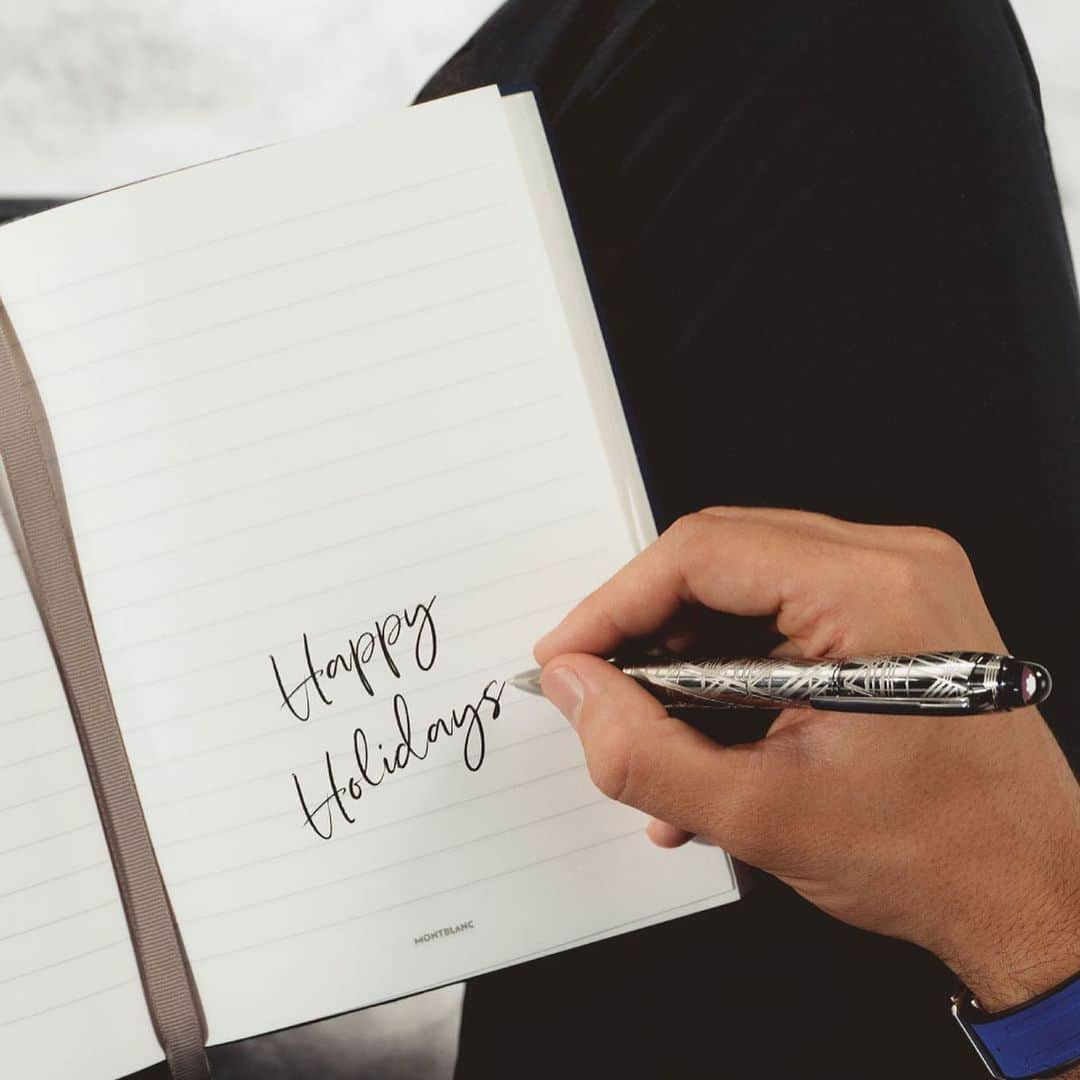 Happy
Holidays
MONTBLANC